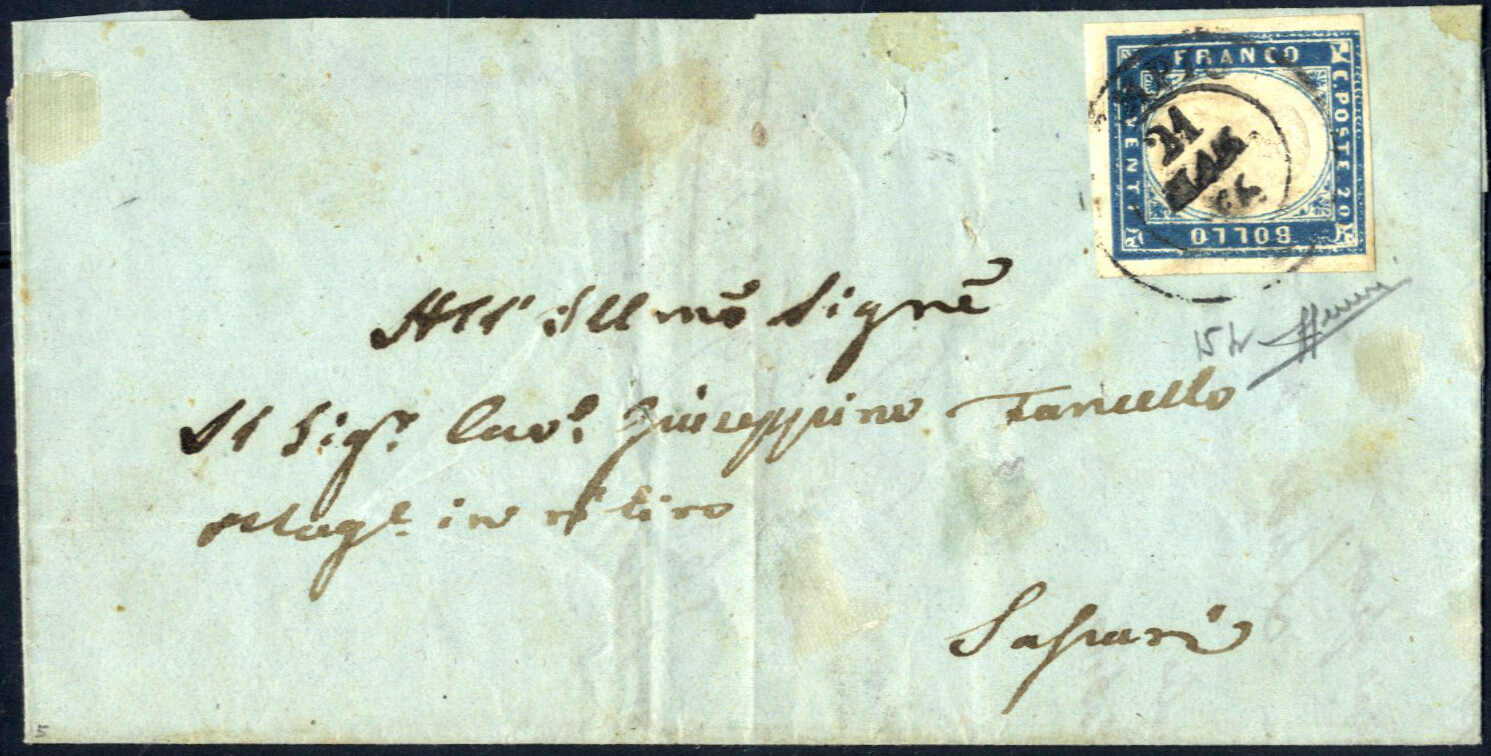 FRANCO
C. POSTE 20
BOLLO
VENTI
21
All' Illmo Signre
Il Sigr Cavr Giuseppino Fancello
Magr in ritiro
Sassari
15 h